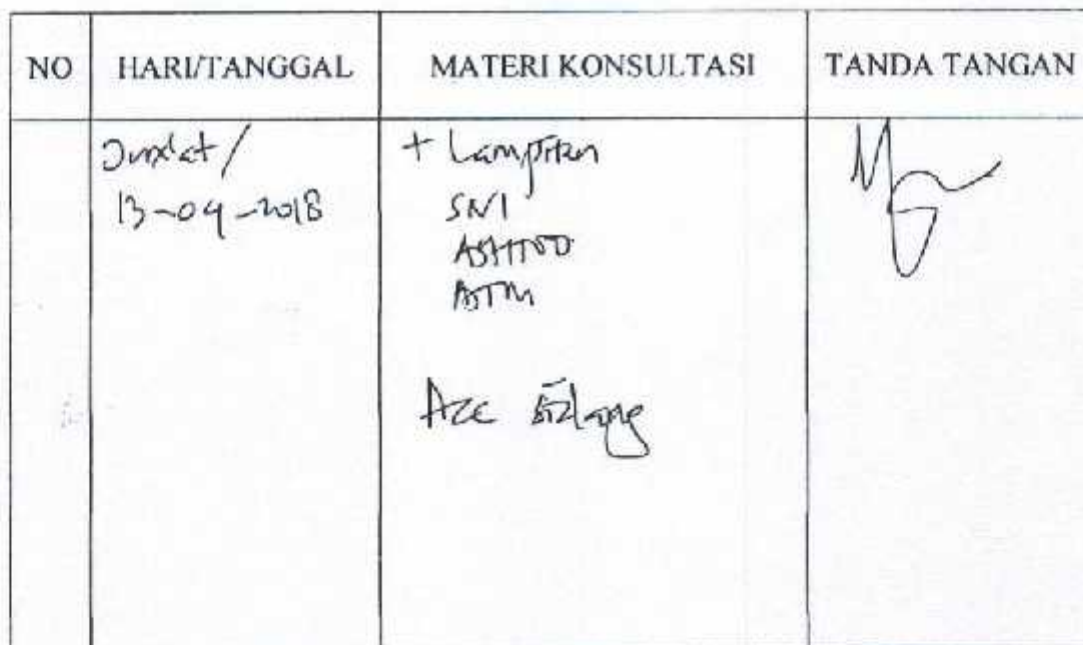 NO HARI/TANGGAL MATERI KONSULTASI TANDA TANGAN
Jum'at /
13-04-2018
+ Lampiran
SNI
AASHTO
ASTM
Acc sidang